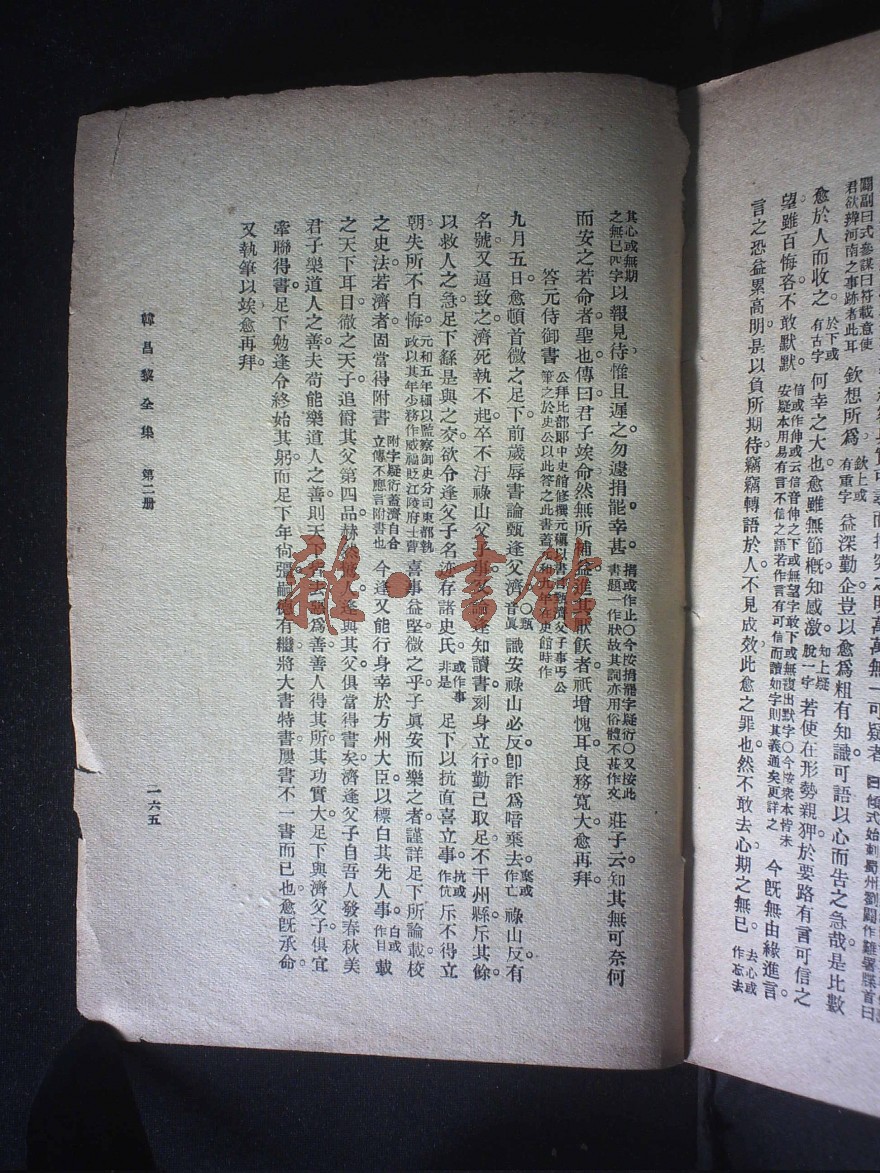 愈於人而收之。於下或有古字欽想所爲欽上或有重字益深勤企豈以愈爲粗有知識可語以心而告之急哉是比數
望雖百悔吝不敢默默。何幸之大也愈雖無節概知感激知上疑脫一字若使在形勢親狎於要路有言可信之
信或作伸或云信音伸之下或無望字敢下或無復出默字〇今按衆本皆未
安疑本用易有言不信之語若作言有可信而讀如字則其義通矣更詳之今旣無由緣進言
言之恐益累高明是以負所期待竊竊轉語於人不見成效此愈之罪也然不敢去心期之無已去心或作忘去
其心或無期之無已四字以報見待惟且遲之勿遽捐罷幸甚。捐或作止〇今按捐罷字疑衍〇又按此書題一作狀故其詞亦用俗體不甚作文莊子云知其無可奈何
而安之若命者聖也傳曰君子竢命然無所補益進其厭飫者祇增愧耳良務寬大愈再拜。
答元侍御書公拜比部郎中史館修撰元稹以書
九月五日愈頓首微之足下前歲辱書論甄逢父濟〇甄音眞識安祿山必反卽詐爲喑棄去棄或作亡祿山反有
名號又逼致之濟死執不起卒不汙祿山父子事又論逢知讀書刻身立行勤己取足不干州縣斥其餘
以救人之急足下繇是與之交欲令逢父子名迹存諸史氏或作事非是足下以抗直喜立事抗或作伉斥不得立
朝失所不自悔元和五年稹以監察御史分司東都執政以其年少務作威福貶江陵府士曹喜事益堅微之乎子眞安而樂之者謹詳足下所論載校
之史法若濟者固當得附書附字疑衍蓋濟自合立傳不應言附書也今逢又能行身幸於方州大臣以標白其先人事。白或作目載
之天下耳目徹之天子追爵其父第四品赫然驚人逢與其父俱當得書矣濟逢父子自吾人發春秋美
君子樂道人之善夫苟能樂道人之善則天下皆去惡爲善善人得其所其功實大足下與濟父子俱宜
牽聯得書足下勉逢令終始其躬而足下年尙彊嗣德有繼將大書特書屢書不一書而已也愈旣承命
又執筆以竢愈再拜。
韓昌黎全集　第二册
一六五
雜·書館